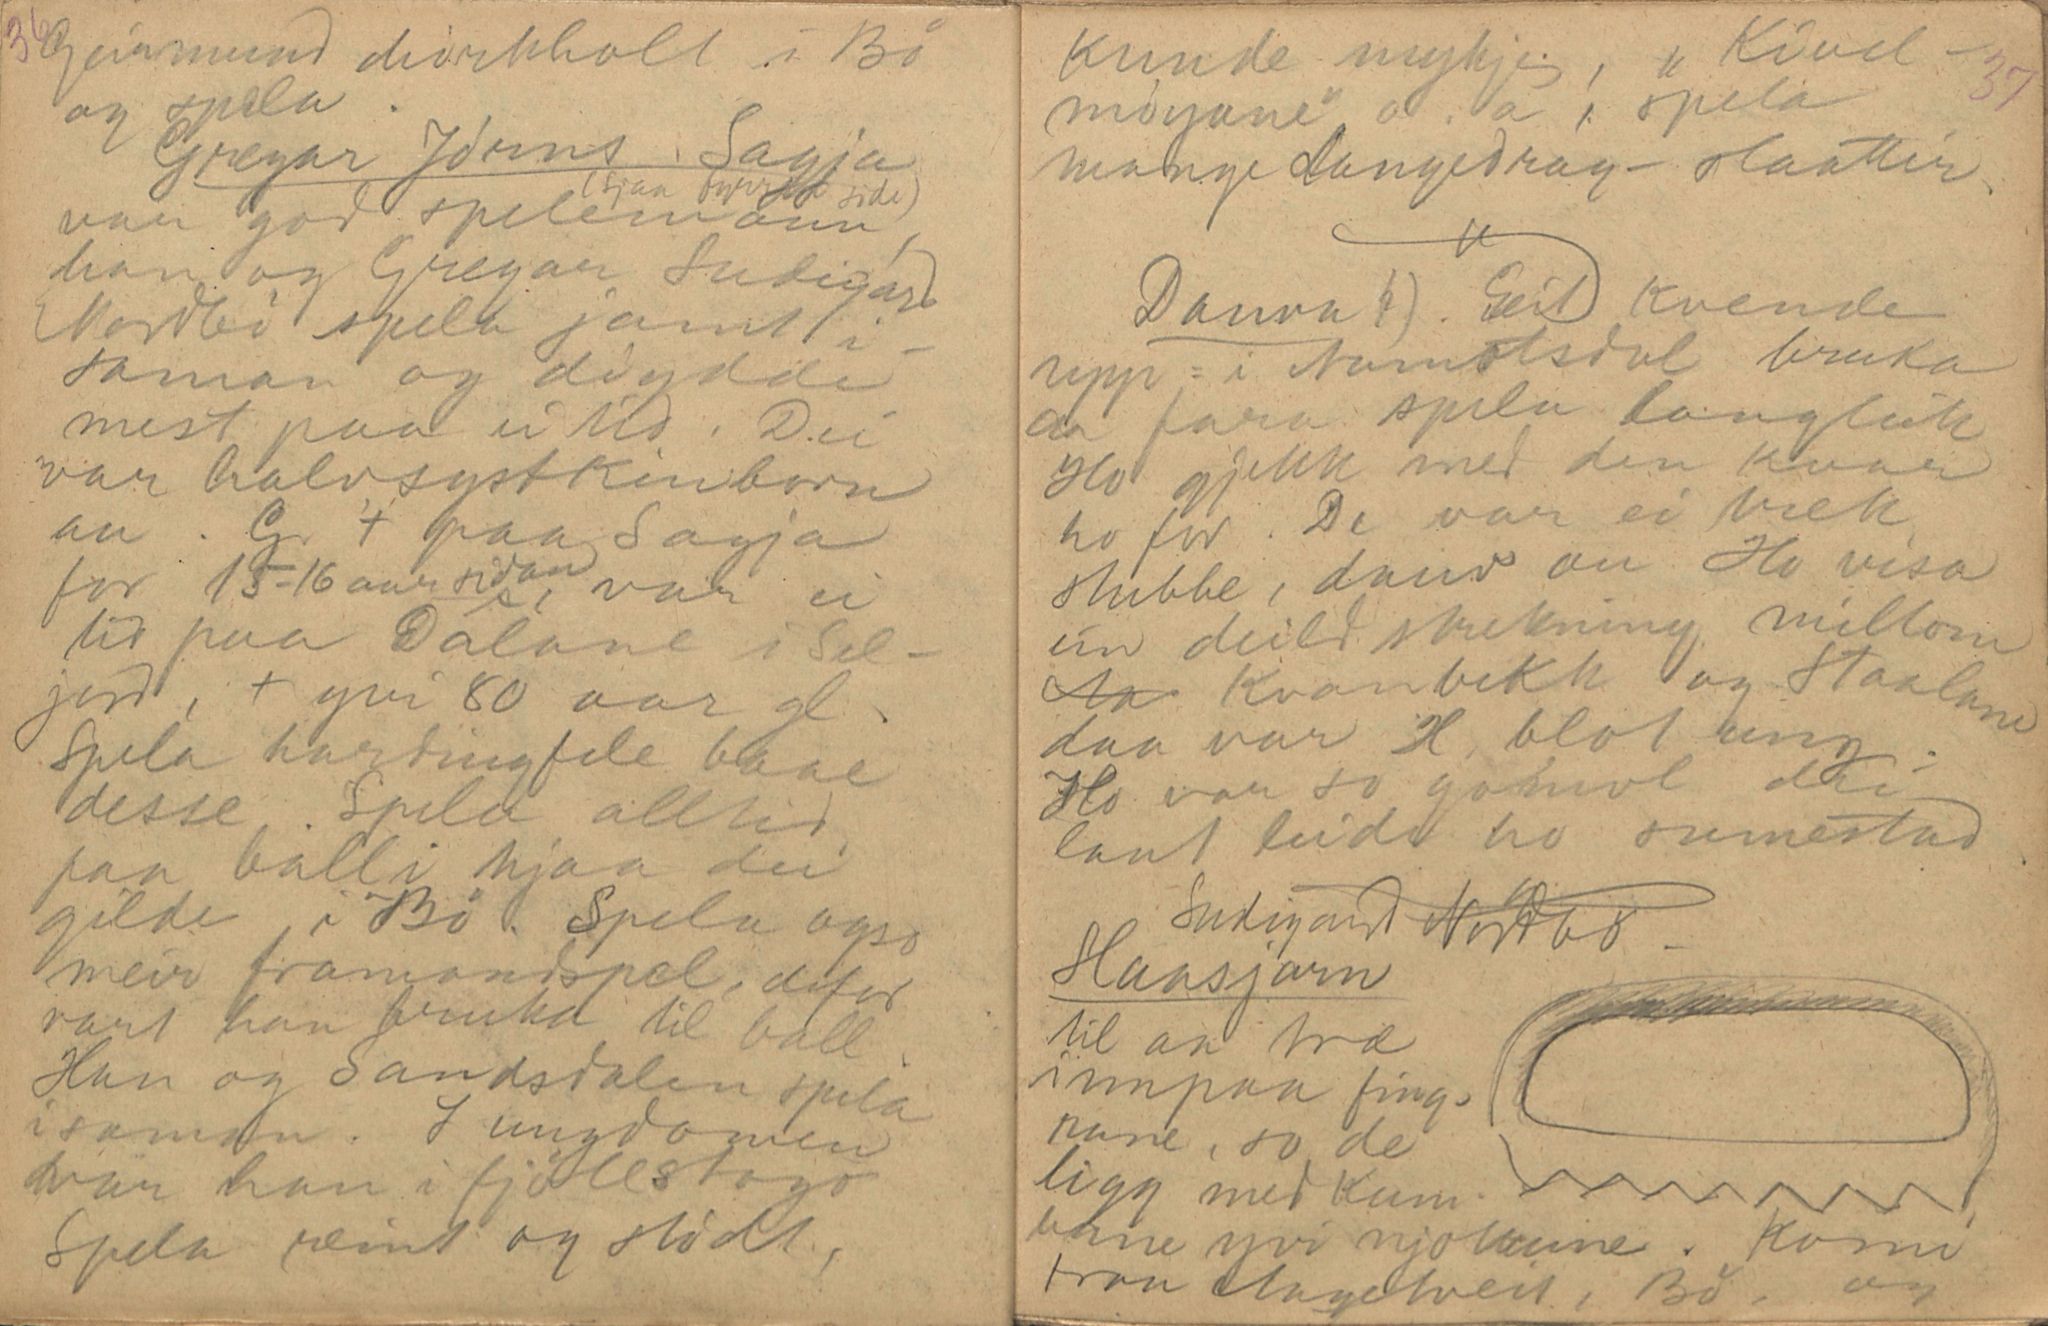 36
Geirmund Liorkholt i Bø
og spela.
Gregar Jörns Sagja
(sjaa fyrre side)
var god spelemann,
han og Gregar Sudigard
Nordbö spela jamt i-
saman og döydde
mest paa ei tid. Dei
var halvsystkinborn
au. Gr + paa Sagja
for 15-16 aar sidan, var ei
tid paa Dalane i Sel-
jord, + yvi 80 aar gl.
Spela hardingfele baae
desse. Spela alltid
paa balli hjaa dei
gilde i Bö. Spela ogso
meir framandspel, difor
vart han bruka til ball.
Han og Sandsdalen spela
isaman. I ungdomen
var han i fjöllestogo
Spela reint og stödt,
37
Kunde mykje, "Kivel-
möyane" o. a, spela
mange Langedrag-slaattir.
Danva(?). Eeit kvende
upp i Numetsdal bruka
aa fara spela langleik
Ho gjekk med den kvar
ho for. De var ei vek
stubbe, danv au Ho visa
ein deild strekning millom
Kvanbekk og Staalane
daa var H. blot ung.
Ho var so gomol dei
laut leide ho sumestad
Sudigard Nordbö -
Haasjarn
til aa træ
innpaa fing-
rane, so de
ligg med kam-
bane yvi njokune. Kom
fraa Hagetveit, Bö, og